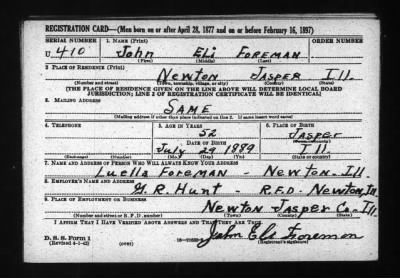 REGISTRATION CARD—(Men born on or after April 28, 1877 and on or before February 16, 1897)
SERIAL NUMBER 1. NAME (Print) ORDER NUMBER
U 410 John Eli Foreman
(First) (Middle) (Last)
2. PLACE OF RESIDENCE (Print)
Newton Jasper Ill.
(Number and street) (Town, township, village, or city) (County) (State)
[THE PLACE OF RESIDENCE GIVEN ON THE LINE ABOVE WILL DETERMINE LOCAL BOARD
JURISDICTION; LINE 2 OF REGISTRATION CERTIFICATE WILL BE IDENTICAL]
3. MAILING ADDRESS
SAME
(Mailing address if other than place indicated on line 2. If same insert word same)
4. TELEPHONE 5. AGE IN YEARS 6. PLACE OF BIRTH
52 Jasper
DATE OF BIRTH (Town or county)
July 29 1889 Ill
(Exchange) (Number) (Mo.) (Day) (Yr.) (State or country)
7. NAME AND ADDRESS OF PERSON WHO WILL ALWAYS KNOW YOUR ADDRESS
Luella Foreman - Newton Ill.
8. EMPLOYER'S NAME AND ADDRESS
G.R. Hunt - R.F.D. Newton, Ill
9. PLACE OF EMPLOYMENT OR BUSINESS
Newton Jasper Co. Ill.
(Number and street or R. F. D. number) (Town) (County) (State)
I AFFIRM THAT I HAVE VERIFIED ABOVE ANSWERS AND THAT THEY ARE TRUE.
D. S. S. Form 1
(Revised 4-1-42) (over)
John Eli Foreman
(Registrant's signature)